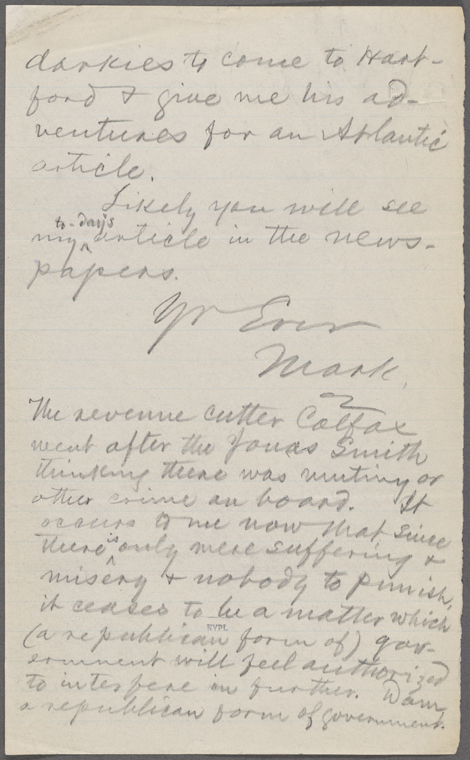 darkies to come to Hart-
ford & give me his ad-
ventures for an Atlantic
article.
Likely you will see
my to-day's article in the news-
papers.
Yr Ever
Mark.
The revenue cutter Colfax
went after the Jonas Smith
thinking there was mutiny or
other crime on board. It
occurs to me now that, since
there is only mere suffering &
misery & nobody to punish,
it ceases to be a matter which
(a republican form of) gov-
ernment will feel authorized
to interfere in further. Dam
a republican form of government.
NYPL